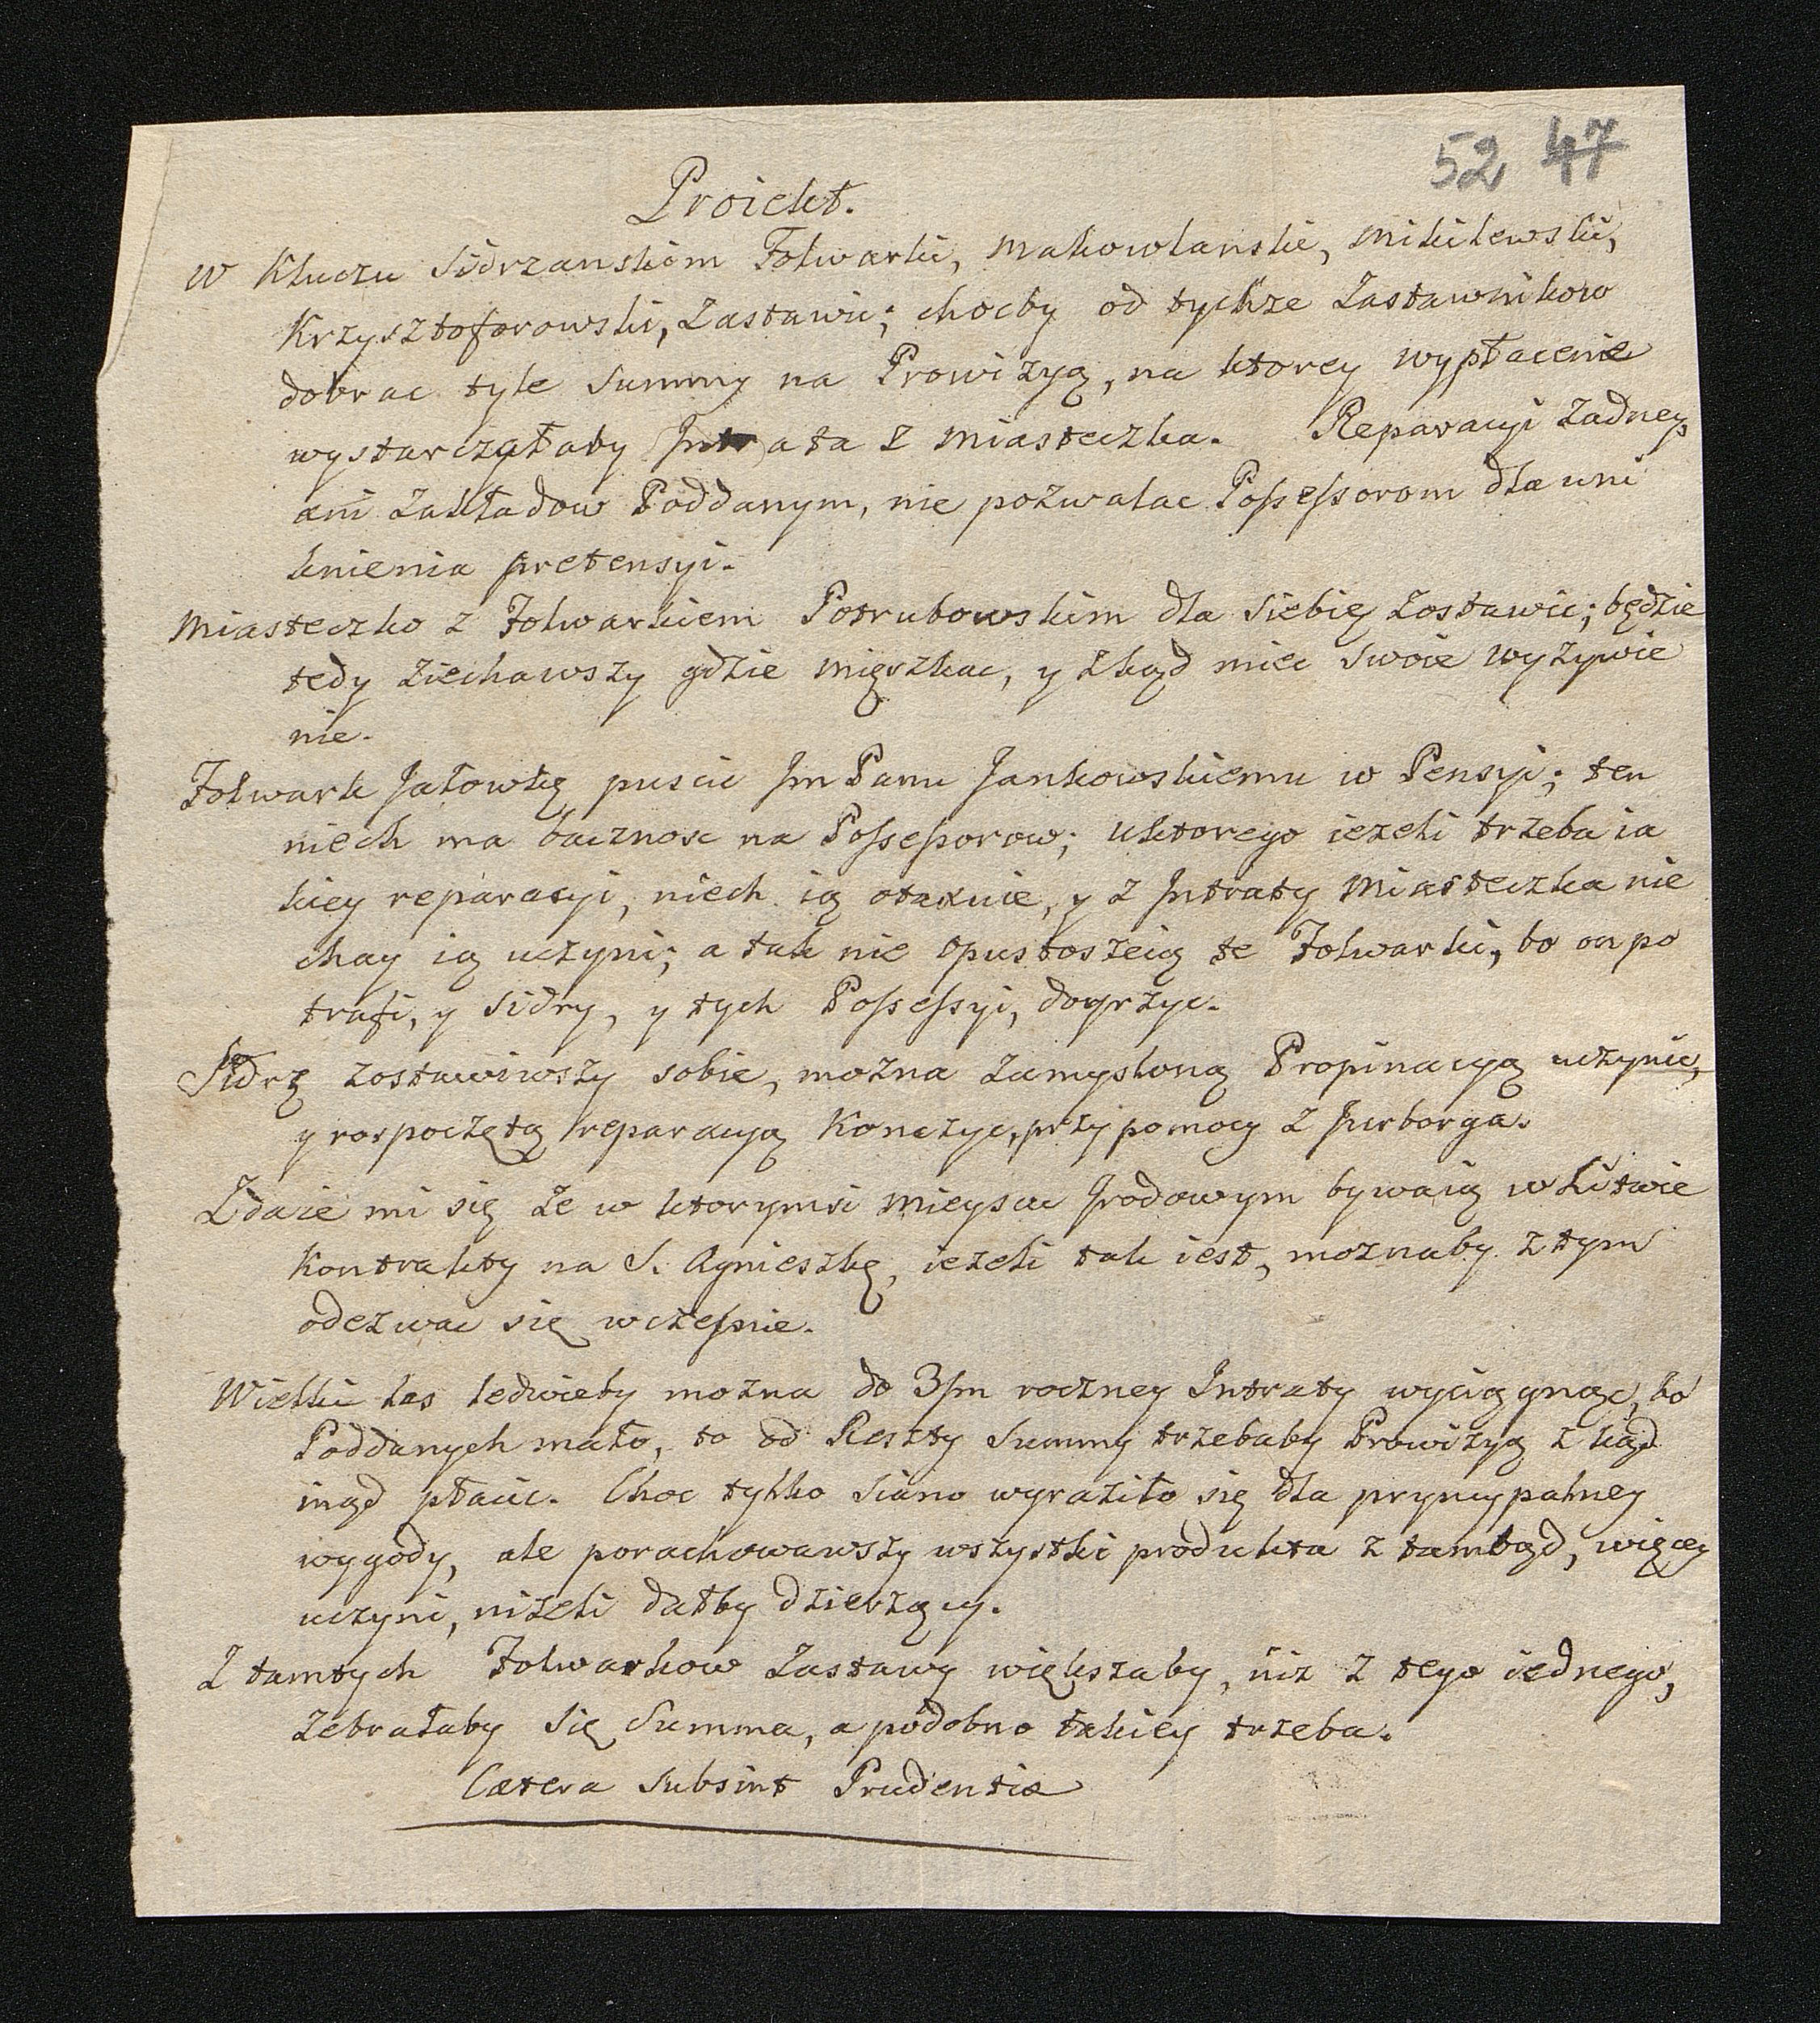 52 47
Proiekt.
W Kluczu Sidrzanskim Folwarki, Makowlanski, Mikilewski,
Krzysztoforowski, Zastawic; chocby od tychze Zastawnikow
dobrac tyle Summy na Prowizyą, na ktorey wypłacenie
wystarczałaby Intrata z Miasteczka. Reparacyi zadney
ani Zakładow Poddanym, nie pozwalac Possessorom dla uni
knienia pretensyi.
Miasteczko z Folwarkiem Potrubowskim dla siebie zostawic; będzie
tedy ziechawszy gdzie mięszkac, y zkąd miec swoie wyzywie
nie.
Folwark Jałowkę puscic Jm Panu Jankowskiemu w Pensyi; ten
niech ma bacznosc na Possessorow; uktorego iezeli trzeba ia
kiey reparacyi, niech ią otaxuie, y z Intraty Miasteczka nie
chay ią uczyni; a tak nie opustoszeią te Folwarki, bo on po
trafi, y Sidry, y tych Possessyi, doyrzyc.
Sidrę zostawiwszy sobie, mozna zamysloną Propinacyą uczynic,
y rospoczętą reparacyą Konczyc, przy pomocy z Jurborga.
Zdaie mi się ze w ktorymsi mieyscu Grodowym bywaią w Litwie
Kontrakty na S. Agnieszkę, iezeli tak iest, moznaby z tym
odezwac się wczesnie.
Wielki Las ledwieby mozna do 3/m roczney Intraty wyciągnąc, bo
Poddanych mało, to od Reszty Summy trzebaby Prowizyą z kąd
inąd płacic. Choc tylko Siano wyraziło się dla pryncypalney
wygody, ale porachowawszy wszystkie produkta z tamtąd, więcey
uczyni, nizeli dałby dzierzący.
Z tamtych Folwarkow Zastawy większaby, niz z tego iednego,
zebrałaby się Summa, a podobno takiey trzeba.
Cætera Subsint Prudentiæ